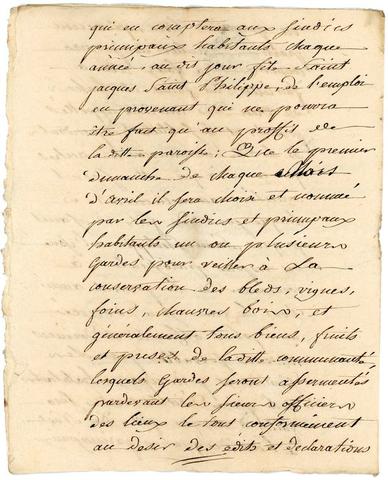 qui en comptera aux sindics
principaux habitants chaque
année, au dit jour fete Saint
jacques Saint Philippe, de l'emploi
en provenant qui ne pourra
être fait qu'au proffit de
la ditte paroisse; Que le premier
dimanche de chaque Mois
d'avril il sera choisi et nommé
par les sindics et principaux
habitants un ou plusieurs
Gardes pour veiller à La
conservation des bleds, vignes,
foins, chanvres bois, et
généralement tous biens, fruits
et prises de laditte communauté,
lesquels Gardes seront assermentés
pardevant les sieurs officiers
des lieux le tout conformément
au desir des édits et declarations